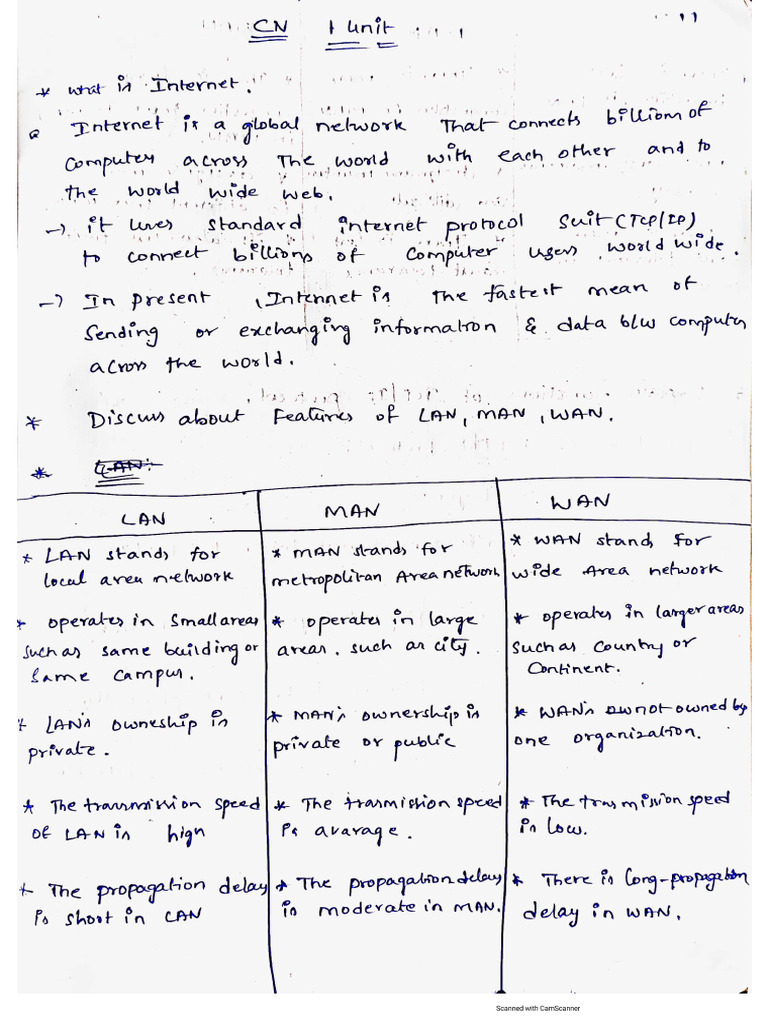 CN 1 Unit
* what is Internet.
Internet is a global network That connects billion of
Computers across The world with each other and to
the world wide web.
→ it uses standard internet protocol suit (TCP/IP)
to connect billions of computer users world wide.
→ In present, Internet is the fastest mean of
sending or exchanging information & data b/w computers
across the world.
* Discuss about Features of LAN, MAN, WAN.
* LAN:-
LAN
* LAN stands for
local area network
* operates in small areas
such as same building or
same campus.
* LAN's owneship is
private.
* The transmission speed
of LAN is high
* The propagation delay
is short in LAN
MAN
* MAN stands for
metropolitan Area network
* operates in large
areas. such as city.
* MAN's ownership is
private or public
* The trasmission speed
is avarage.
* The propagation delay
is moderate in MAN.
WAN
* WAN stands for
wide Area network
* operates in larger areas
such as country or
continent.
* WAN's ownot owned by
one organization.
* The trasmission speed
is low.
* There is long-propagation
delay in WAN.
Scanned with CamScanner